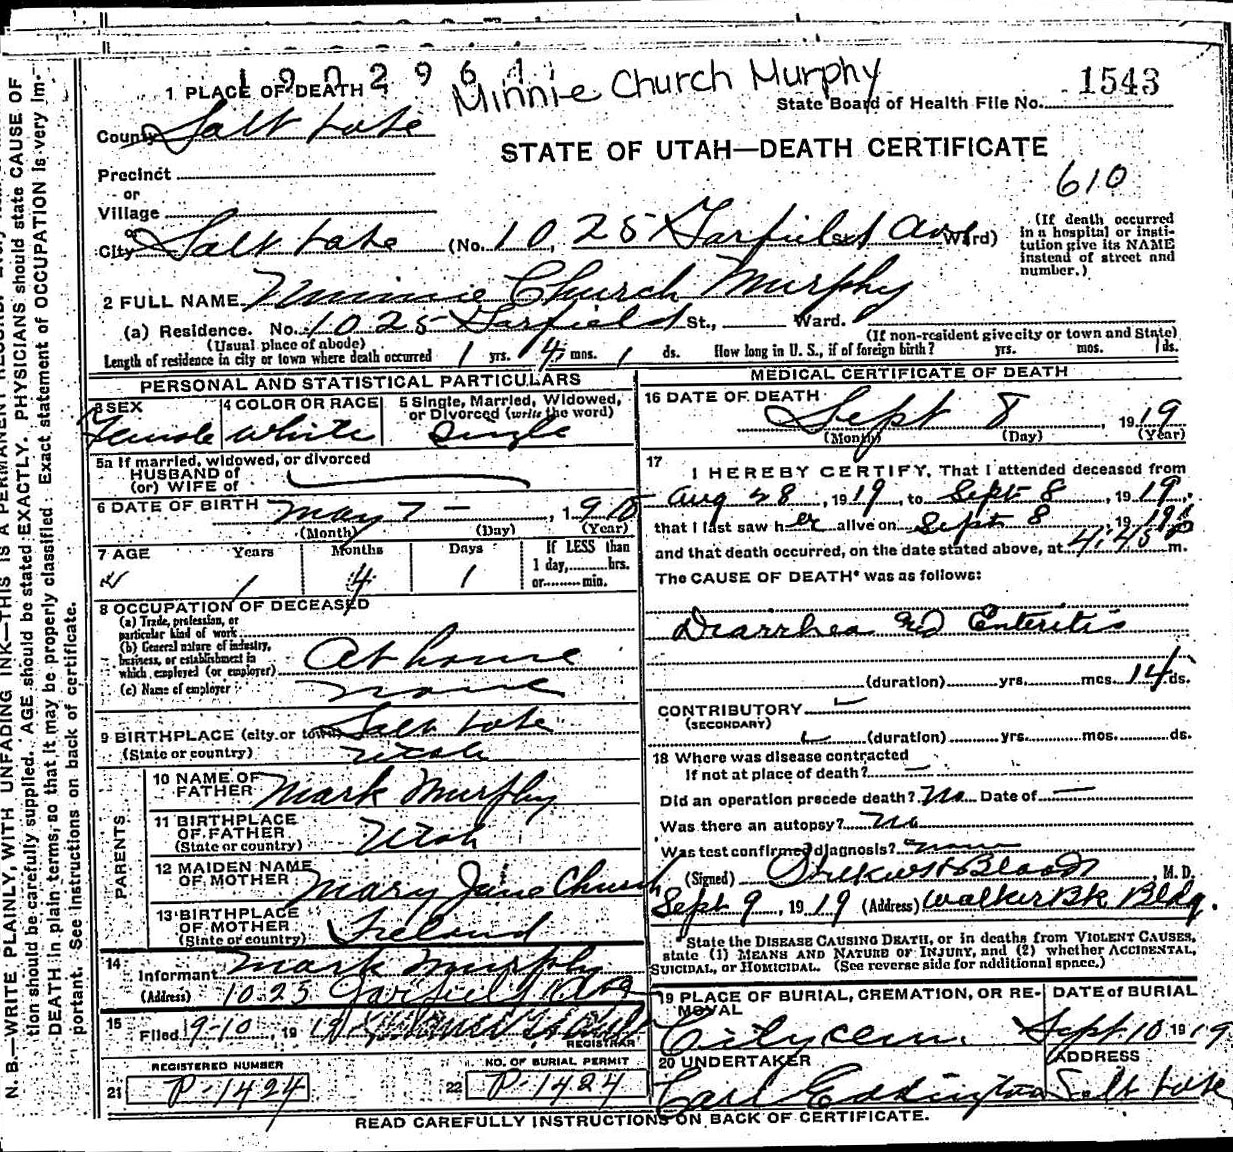 1902961
Minnie Church Murphy
1543
1 PLACE OF DEATH
State Board of Health File No.
County Salt Lake
STATE OF UTAH—DEATH CERTIFICATE
Precinct
or
610
Village
City Salt Lake (No. 1025 Garfield St. Ave Ward)
(If death occurred in a hospital or insti-
tution give its NAME
instead of street and
number.)
2 FULL NAME Minnie Church Murphy
(a) Residence. No. 1025 Garfield St., Ward.
(Usual place of abode) (If non-resident give city or town and State)
Length of residence in city or town where death occurred 1 yrs. 4 mos. 1 ds. How long in U. S., if of foreign birth? yrs. mos. ds.
PERSONAL AND STATISTICAL PARTICULARS
3 SEX Female
4 COLOR OR RACE White
5 Single, Married, Widowed,
or Divorced (write the word)
Single
5a If married, widowed, or divorced
HUSBAND of
(or) WIFE of
6 DATE OF BIRTH May 7 – , 19
(Month) (Day) (Year)
7 AGE Years Months Days If LESS than
1 day, hrs.
or min.
1 4 1
8 OCCUPATION OF DECEASED
(a) Trade, profession, or
particular kind of work
(b) General nature of industry,
business, or establishment in
which employed (or employer) At home
(c) Name of employer none
9 BIRTHPLACE (city or town) Salt Lake
(State or country) Utah
PARENTS
10 NAME OF
FATHER Mark Murphy
11 BIRTHPLACE
OF FATHER
(State or country) Utah
12 MAIDEN NAME
OF MOTHER Mary Jane Church
13 BIRTHPLACE
OF MOTHER
(State or country) Ireland
14
Informant Mark Murphy
(Address) 1025 Garfield Ave
15
Filed 9-10, 1919
REGISTRAR
REGISTERED NUMBER
21 P-1424
NO. OF BURIAL PERMIT
22 P-1424
MEDICAL CERTIFICATE OF DEATH
16 DATE OF DEATH
Sept 8, 1919
(Month) (Day) (Year)
17
I HEREBY CERTIFY, That I attended deceased from
Aug 28, 1919, to Sept 8, 1919,
that I last saw her alive on Sept 8, 1919
and that death occurred, on the date stated above, at 4:45 P m.
The CAUSE OF DEATH* was as follows:
Diarrhea and Enteritis
(duration) yrs. mos. 14 ds.
CONTRIBUTORY
(SECONDARY)
(duration) yrs. mos. ds.
18 Where was disease contracted
If not at place of death?
Did an operation precede death? No Date of –
Was there an autopsy? No
Was test confirmed diagnosis? none
(Signed) M. D.
Sept 9, 1919 (Address) Walker Bk Bldg.
*State the DISEASE CAUSING DEATH, or in deaths from VIOLENT CAUSES,
state (1) MEANS AND NATURE OF INJURY, and (2) whether ACCIDENTAL,
SUICIDAL, or HOMICIDAL. (See reverse side for additional space.)
19 PLACE OF BURIAL, CREMATION, OR RE-
MOVAL
City cem.
DATE of BURIAL
Sept. 10 1919
20 UNDERTAKER
Carl Eddington
ADDRESS
Salt Lake
READ CAREFULLY INSTRUCTIONS ON BACK OF CERTIFICATE.
N. B.—WRITE PLAINLY, WITH UNFADING INK—THIS IS A PERMANENT RECORD.
tion should be carefully supplied. AGE should be stated EXACTLY. PHYSICIANS should state CAUSE OF
DEATH in plain terms, so that it may be properly classified. Exact statement of OCCUPATION is very im-
portant. See instructions on back of certificate.